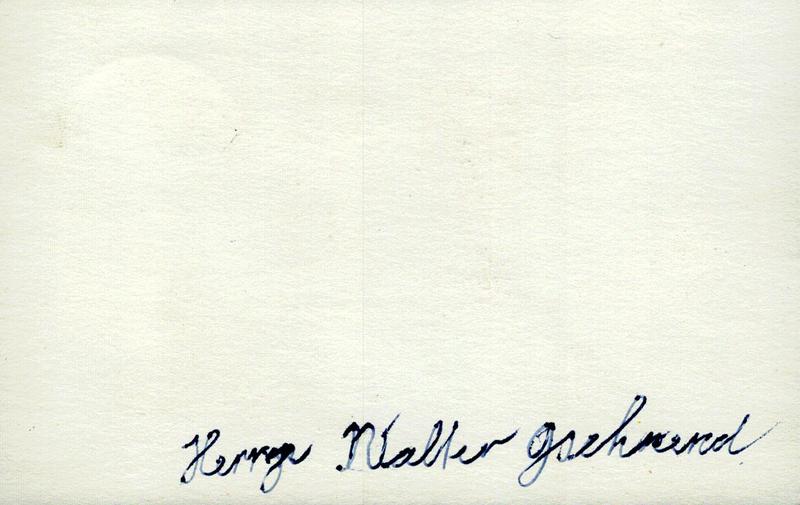 Herrn Walter Gschwend